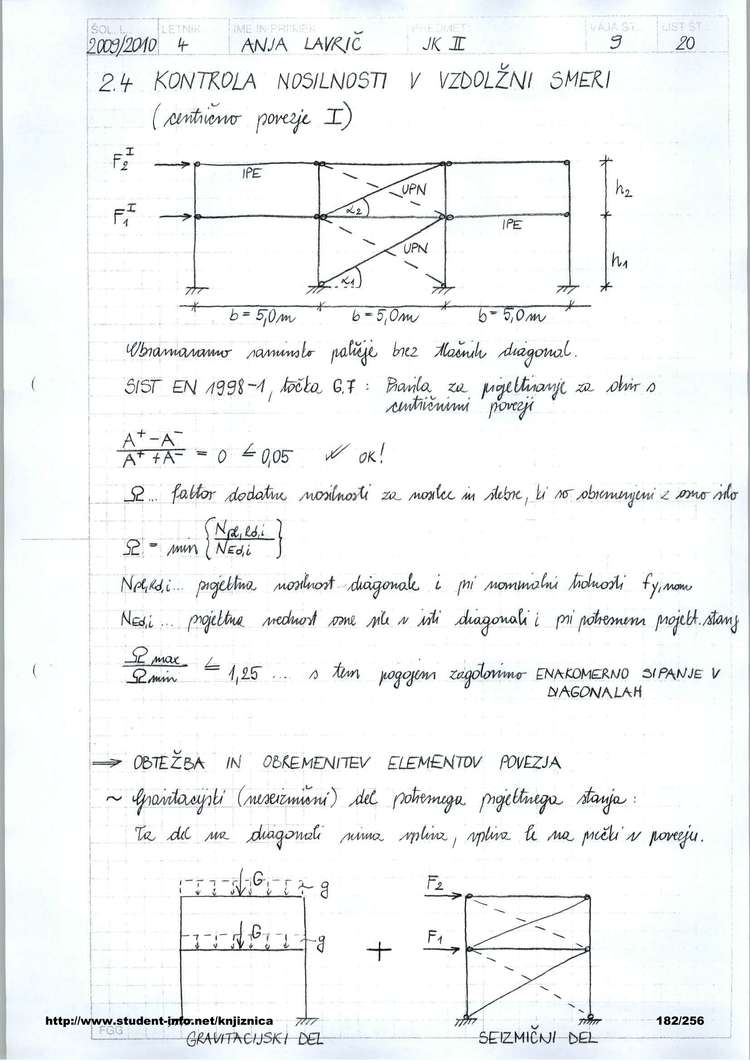 ŠOL. L. LETNIK IME IN PRIIMEK PREDMET VAJA ŠT. LIST ŠT.
2009/2010 4 ANJA LAVRIČ JK II 9 20
2.4 KONTROLA NOSILNOSTI V VZDOLŽNI SMERI
(centrično povezje I)
F₂ᴵ IPE UPN α₂ h₂
F₁ᴵ IPE UPN α₁ h₁
b = 5,0m b = 5,0m b = 5,0m
Obravnavamo natezno paličje brez tlačnih diagonal.
SIST EN 1998-1, točka 6.7 : Pravila za projektiranje za okvir s
centričnimi povezji
A⁺ - A⁻ / A⁺ + A⁻ = 0 ≤ 0,05 ✓ OK!
Ω ... faktor dodatne nosilnosti za nosilce in stebre, ki so obremenjeni z osno silo
Ω = min { Npl,Rd,i / NEd,i }
Npl,Rd,i ... projektna nosilnost diagonale i pri nominalni trdnosti fy,nom
NEd,i ... projektna vrednost osne sile v isti diagonali i pri potresnem projekt. stanj
Ω max / Ω min ≤ 1,25 ... s tem pogojem zagotovimo ENAKOMERNO SIPANJE V
DIAGONALAH
⇒ OBTEŽBA IN OBREMENITEV ELEMENTOV POVEZJA
~ Gravitacijski (neseizmični) del potresnega projektnega stanja :
Ta del na diagonali nima vpliva, vpliva le na prečki v povezju.
G g F₂
G g + F₁
http://www.student-info.net/knjiznica 182/256
FGG
GRAVITACIJSKI DEL SEIZMIČNI DEL